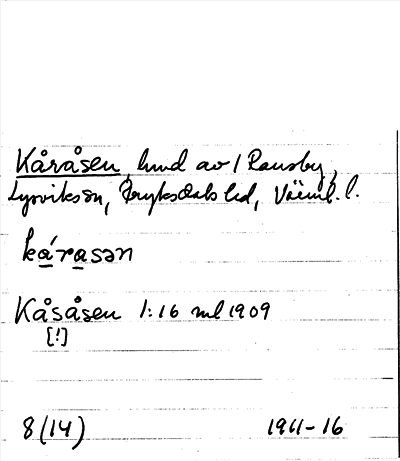 Kåråsen, hmd av 1 Ransby,
Lysviks sn, Fryksdals hd, Värml. l.
ká̱ra̱sən
Kåsåsen 1:16 ml 1909
[!]
8(14) 1911-16